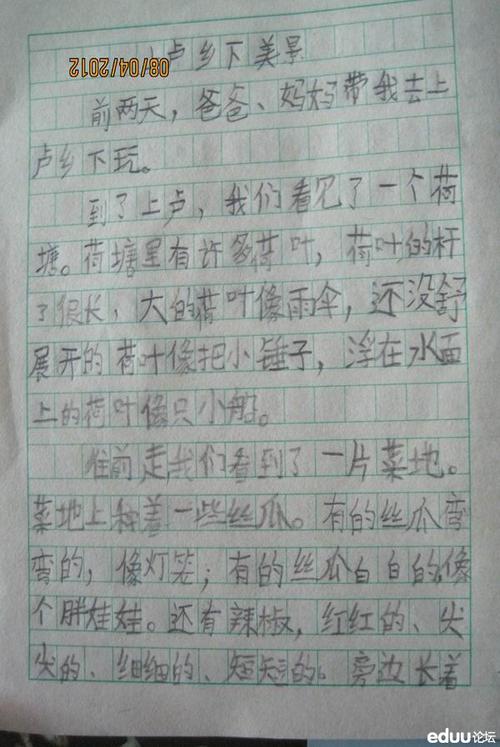 上卢乡下美景
08/04/2012
前两天，爸爸、妈妈带我去上
卢乡下玩。
到了上卢，我们看见了一个荷
塘。荷塘里有许多荷叶，荷叶的杆
子很长，大的荷叶像雨伞，还没舒
展开的荷叶像把小锤子，浮在水面
上的荷叶像只小船。
往前走我们看到了一片菜地。
菜地上种着一些丝瓜。有的丝瓜弯
弯的，像灯笼；有的丝瓜白白的像
个胖娃娃。还有辣椒，红红的、尖
尖的、细细的、短短的。旁边长着
eduu论坛